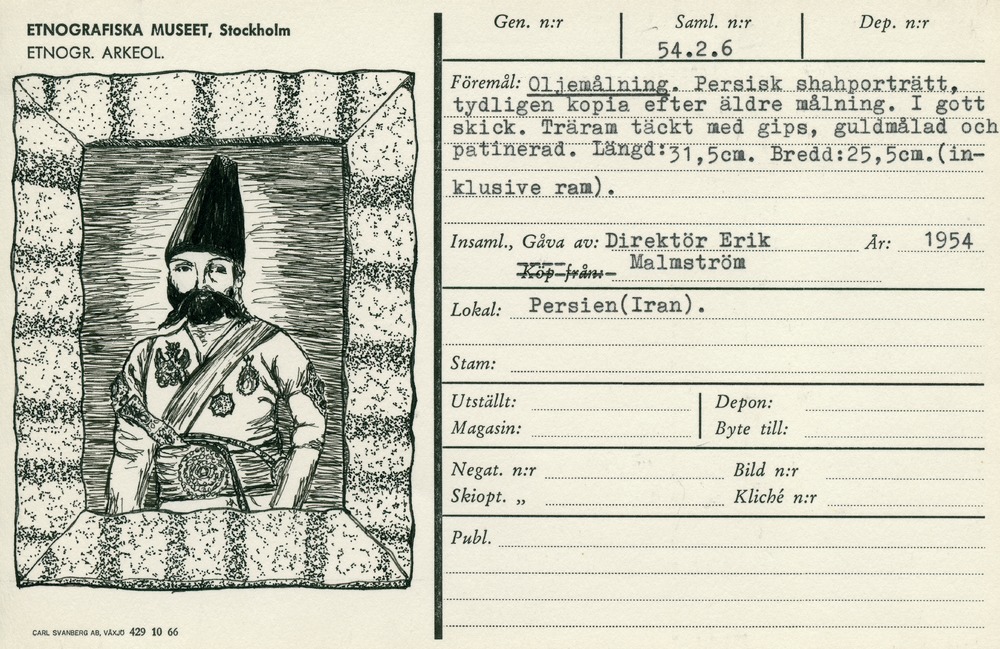 ETNOGRAFISKA MUSEET, Stockholm
ETNOGR. ARKEOL.
CARL SVANBERG AB, VÄXJÖ 429 10 66
Gen. n:r Saml. n:r Dep. n:r
54.2.6
Föremål: Oljemålning. Persisk shahporträtt,
tydligen kopia efter äldre målning. I gott
skick. Träram täckt med gips, guldmålad och
patinerad. Längd:31,5cm. Bredd:25,5cm.(in-
klusive ram).
Insaml., Gåva av: Direktör Erik År: 1954
Köp från: Malmström
Lokal: Persien(Iran).
Stam:
Utställt: Depon:
Magasin: Byte till:
Negat. n:r Bild n:r
Skiopt. „ Kliché n:r
Publ.